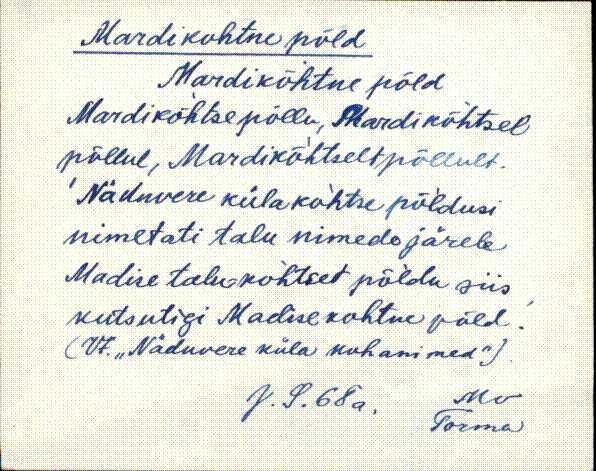 Mardikohtne põld
Mardikõhtne põld
Mardikõhtse põllu, Mardikõhtsel
põllul, Mardikõhtselt põllult.
'Näduvere küla kohtse põldusi
nimetati talu nimede järele
Madise talu kohtset põldu siis
kutsutigi Madise kohtne põld.'
(Vt. „Näduvere küla kohanimed").
J. S. 68a. Mv
Torma